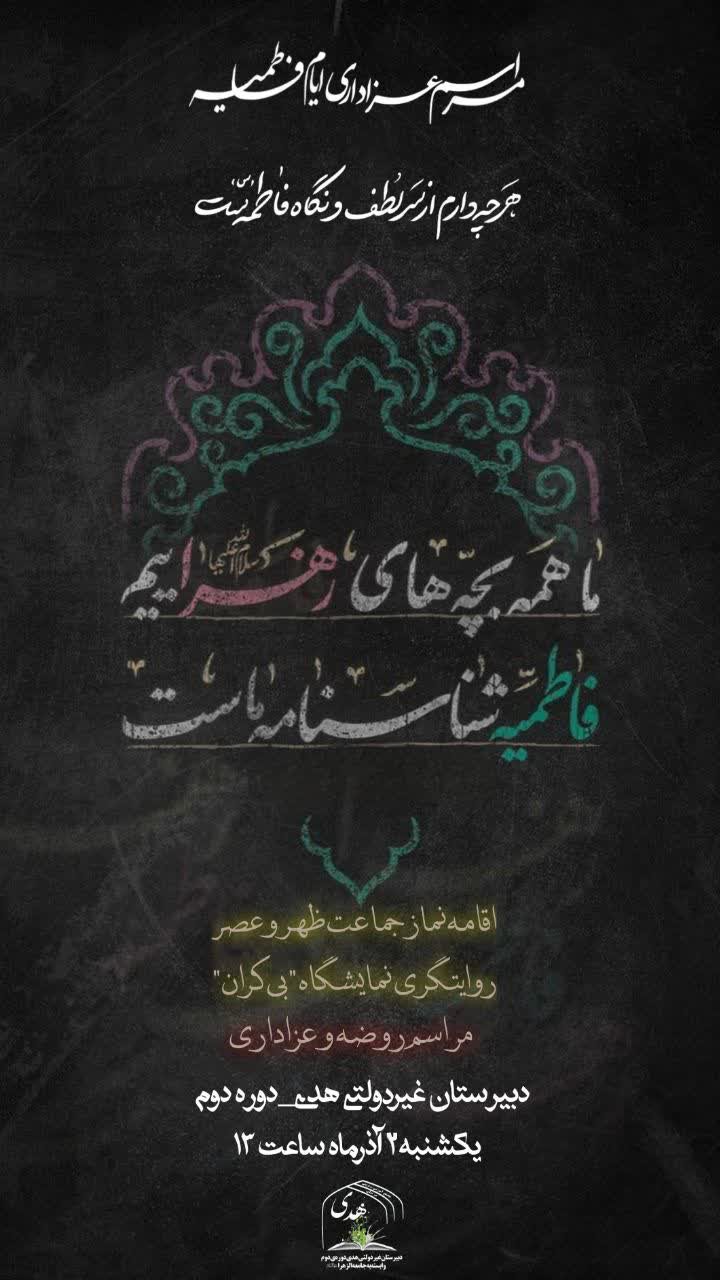 مراسم عزاداری ایام فاطمیه
هرچه دارم از سر لطف و نگاه فاطمه(س) ست
ما همه بچه های زهرا سلام الله علیها ییم
فاطمیّه شناسنامه ماست
اقامه نماز جماعت ظهر و عصر
روایتگری نمایشگاه "بی کران"
مراسم روضه و عزاداری
دبیرستان غیردولتی هدی_دوره دوم
یکشنبه ۲ آذرماه ساعت ۱۳
هدی
دبیرستان غیردولتی هدی دوره ی دوم
وابسته به جامعه الزهرا